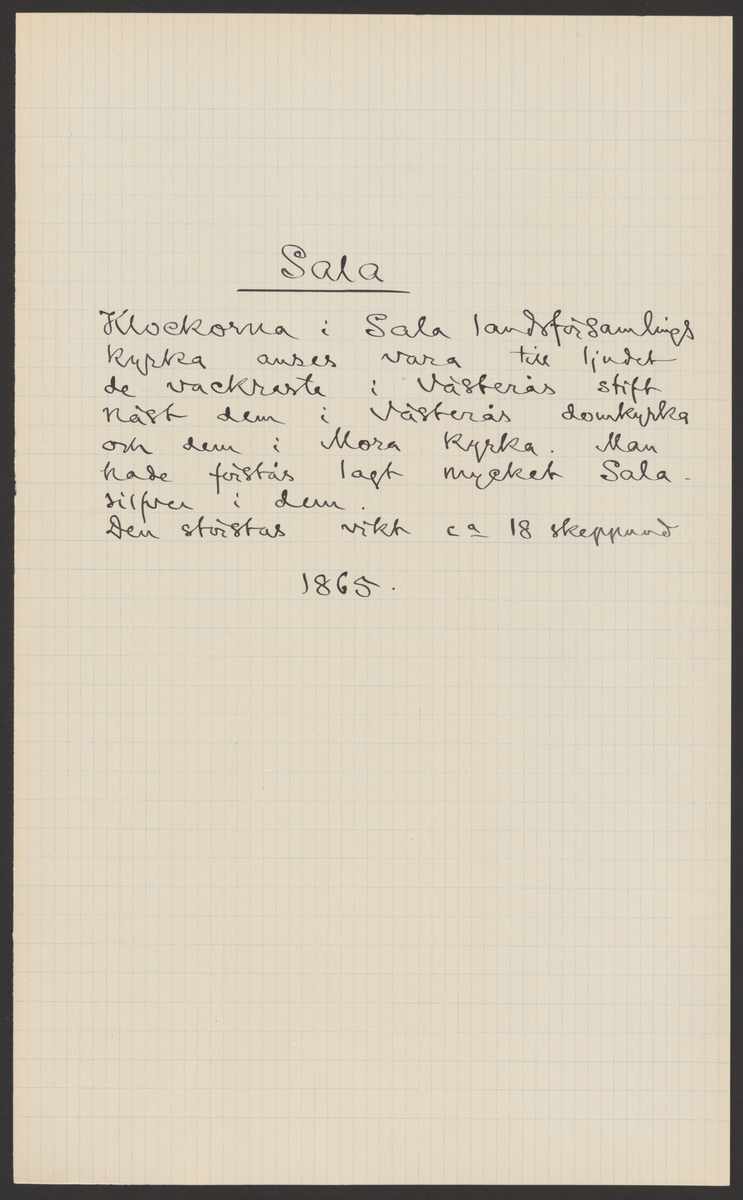 Sala
Klockorna i Sala landsförsamlings
kyrka anses vara till ljudet
de vackraste i Västerås stift
näst dem i Västerås domkyrka
och dem i Mora kyrka. Man
hade förstås lagt mycket Sala-
silfver i dem.
Den störstas vikt ca 18 skeppund
1865.